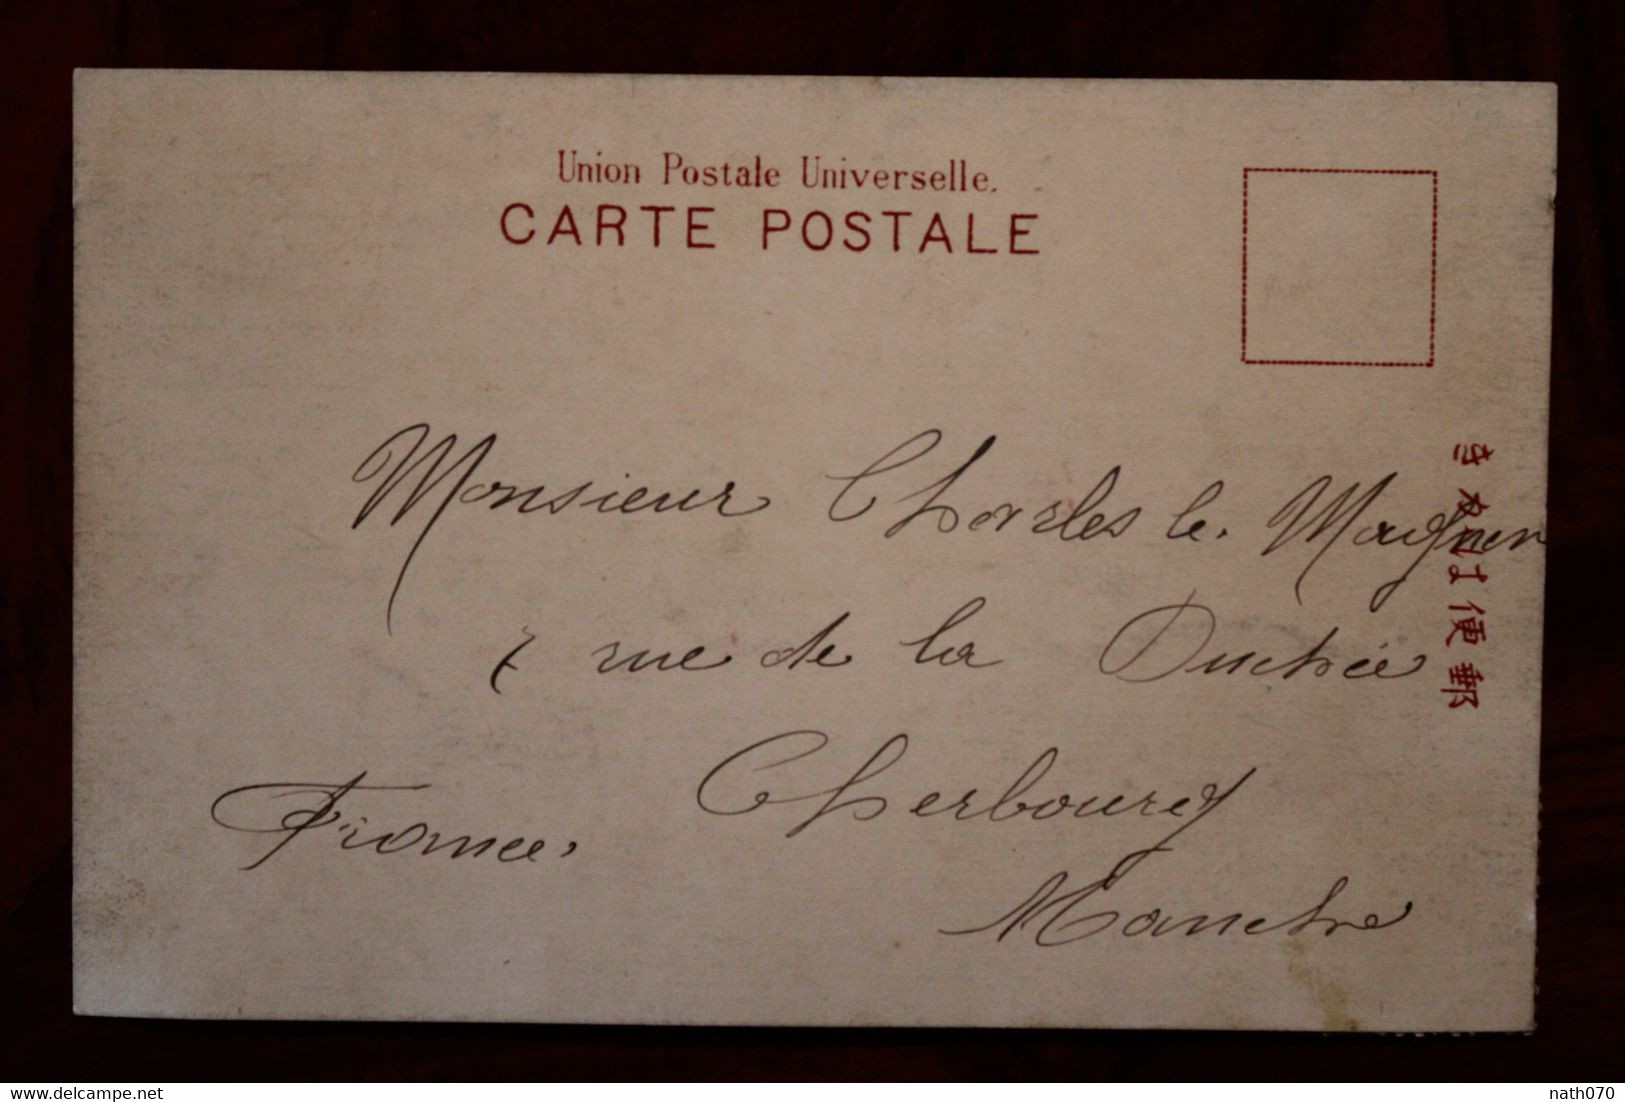 Union Postale Universelle.
CARTE POSTALE
きかは便郵
Monsieur Charles le Magnen
7 rue de la Duchée
Cherbourg
France.
Manche
delcampe.net
nath070